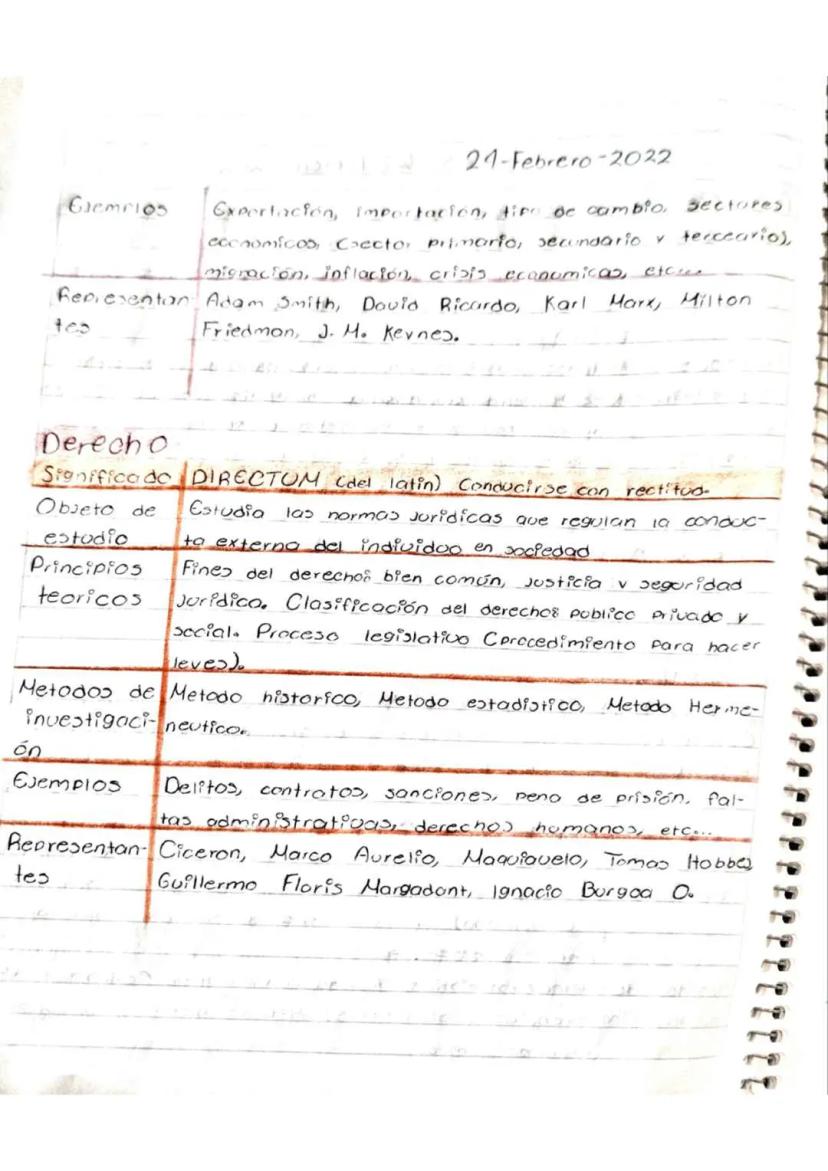 21-Febrero-2022
Ejemplos Exportación, importación, tipo de cambio, sectores
economicos, (sector primario, secundario y terceario),
migración, inflación, crisis economicas, etc...
Representan- Adam Smith, David Ricardo, Karl Marx, Milton
tes Friedman, J. M. Keynes.
Derecho
Significado DIRECTUM (del latin) Conducirse con rectitud.
Objeto de Estudia las normas juridicas que regulan la conduc-
estudio ta externa del individuo en sociedad
Principios Fines del derecho: bien común, justicia y seguridad
teoricos Juridica. Clasificación del derecho: publico privado y
social. Proceso legislativo (procedimiento para hacer
leyes).
Metodos de Metodo historico, Metodo estadistico, Metodo Herme-
investigaci- neutico.
ón
Ejemplos Delitos, contratos, sanciones, pena de prisión, fal-
tas administrativas, derechos humanos, etc...
Representan- Ciceron, Marco Aurelio, Maquiavelo, Tomas Hobbes
tes Guillermo Floris Margadant, Ignacio Burgoa O.